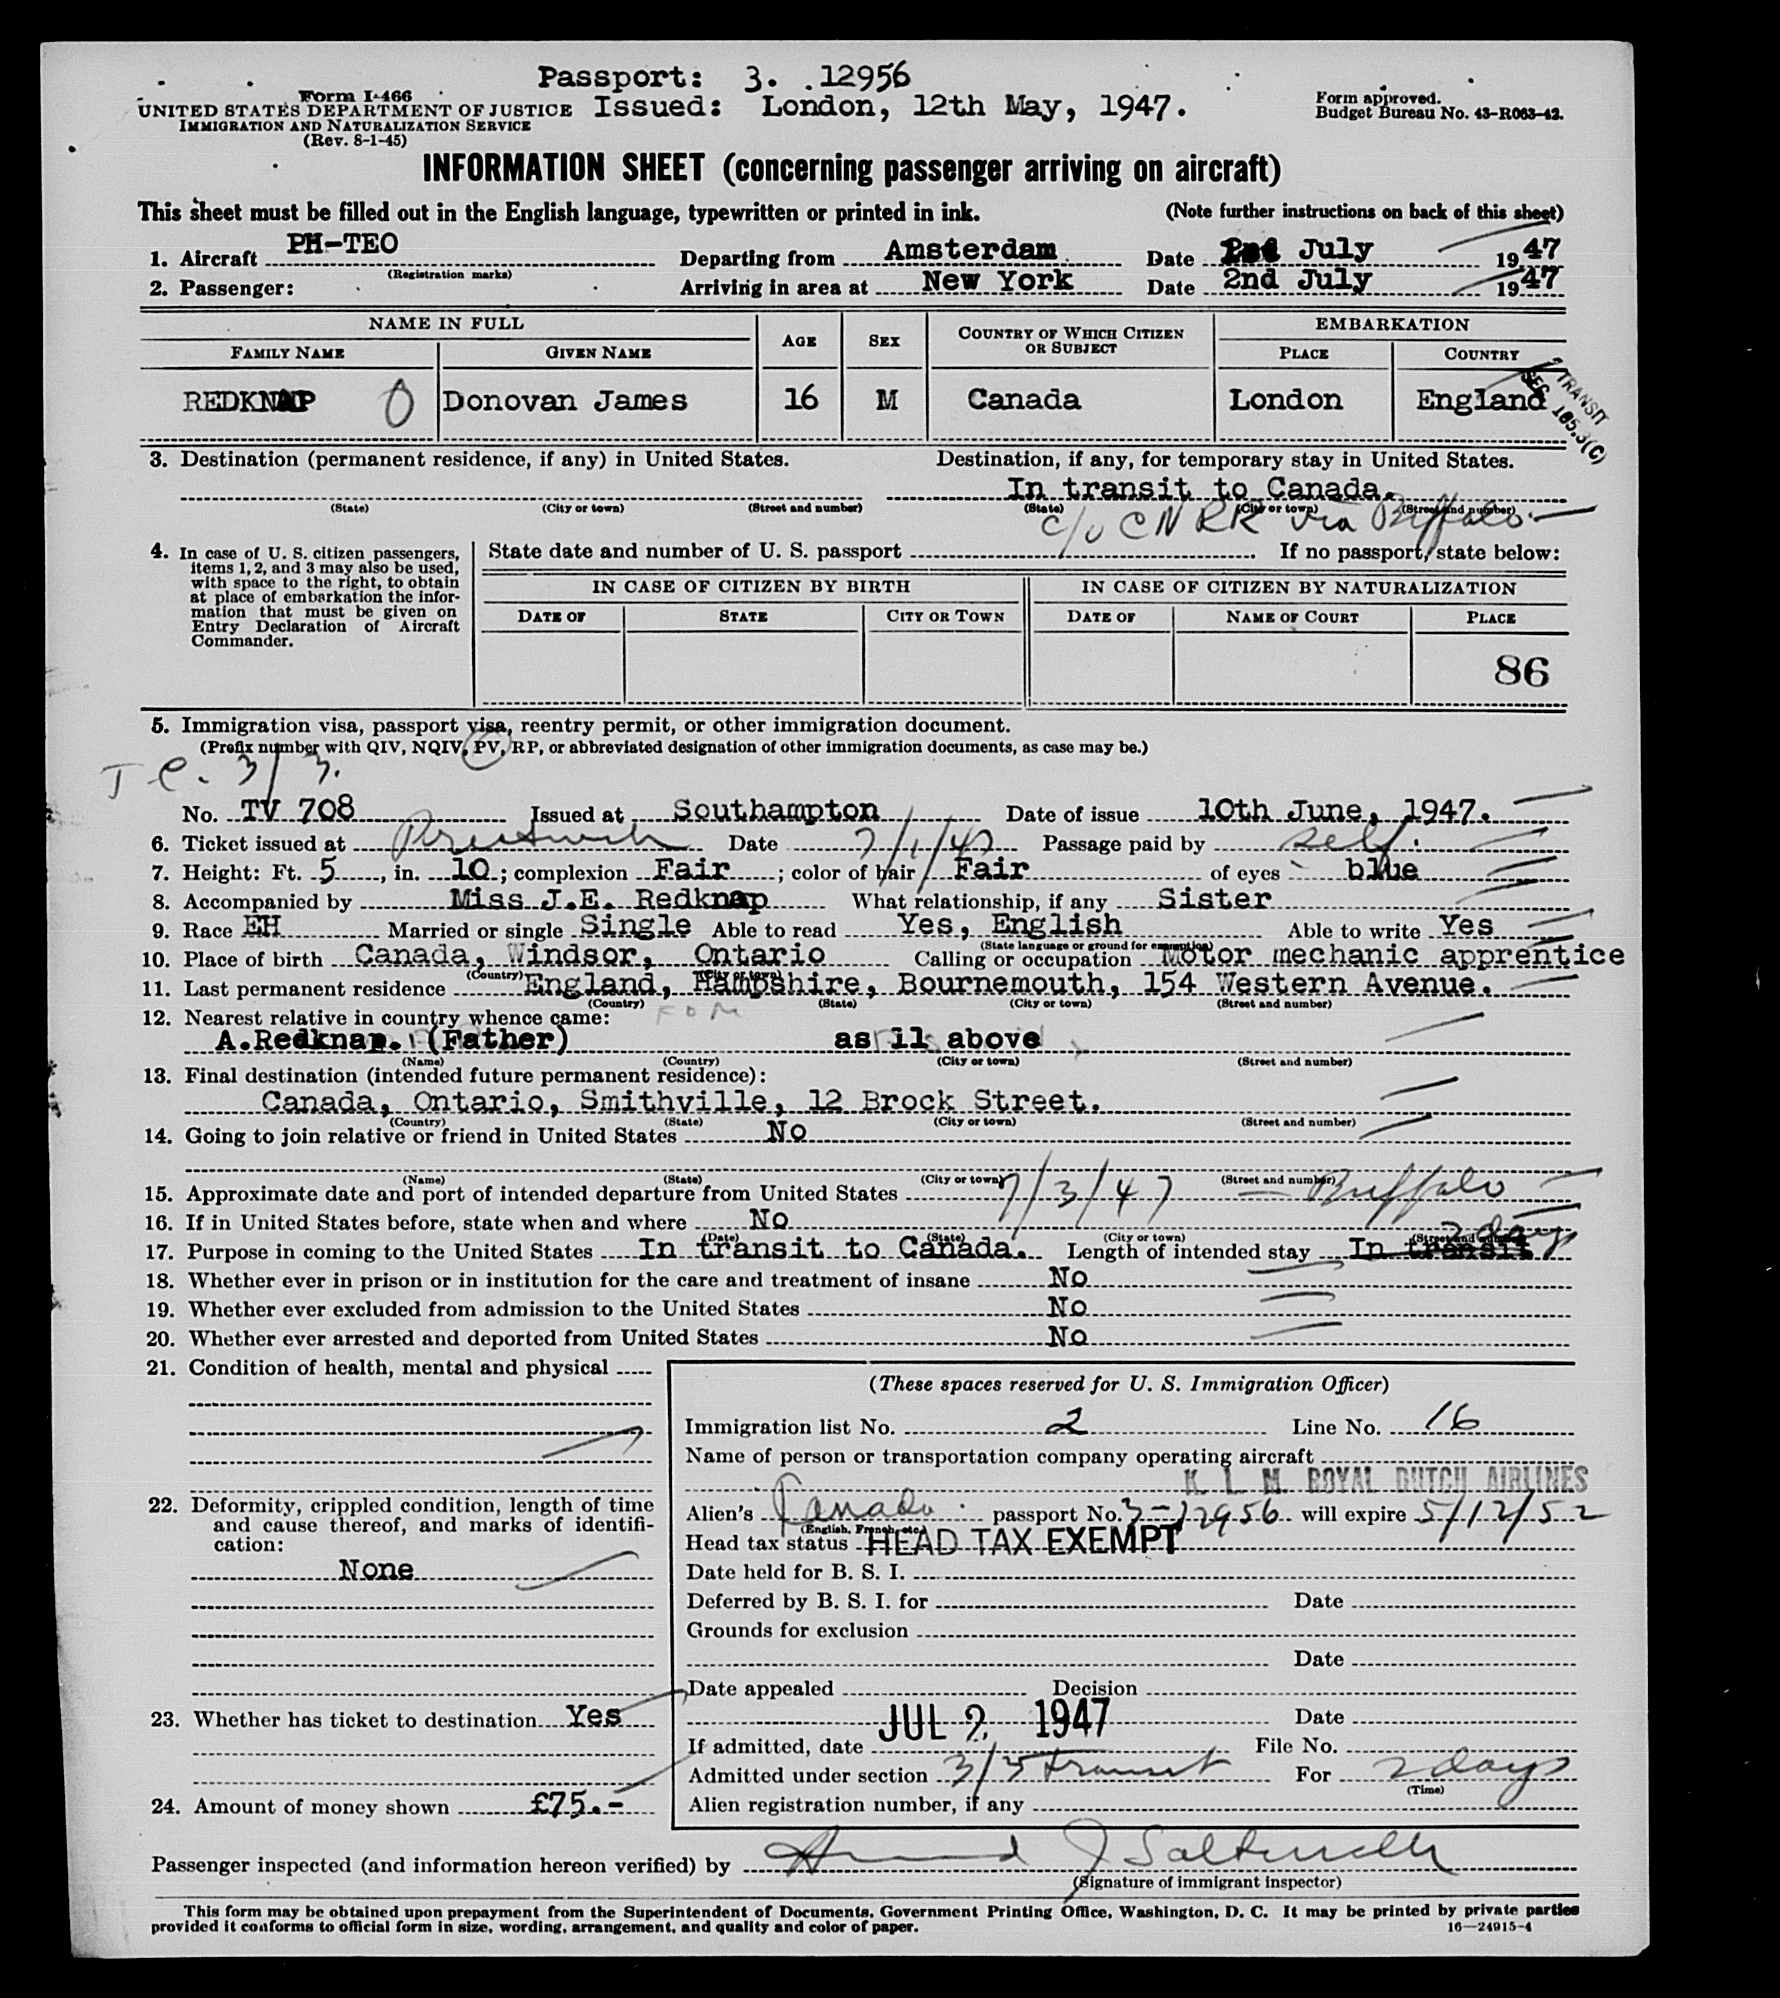 Passport: 3. .12956
Form I-466
UNITED STATES DEPARTMENT OF JUSTICE Issued: London, 12th May, 1947.
IMMIGRATION AND NATURALIZATION SERVICE
(Rev. 8-1-45)
Form approved.
Budget Bureau No. 43-R063-42.
INFORMATION SHEET (concerning passenger arriving on aircraft)
This sheet must be filled out in the English language, typewritten or printed in ink. (Note further instructions on back of this sheet)
1. Aircraft PH-TEO Departing from Amsterdam Date July 1947
(Registration marks)
2. Passenger: Arriving in area at New York Date 2nd July 1947
NAME IN FULL AGE SEX COUNTRY OF WHICH CITIZEN OR SUBJECT EMBARKATION
FAMILY NAME GIVEN NAME PLACE COUNTRY
REDKNAP 0 Donovan James 16 M Canada London England
TRANSIT
SEC. 165.3(C)
3. Destination (permanent residence, if any) in United States. Destination, if any, for temporary stay in United States.
In transit to Canada.
(State) (City or town) (Street and number) (State) (City or town) (Street and number)
c/o CNRR via Buffalo
4. In case of U. S. citizen passengers, items 1, 2, and 3 may also be used, with space to the right, to obtain at place of embarkation the information that must be given on Entry Declaration of Aircraft Commander.
State date and number of U. S. passport If no passport, state below:
IN CASE OF CITIZEN BY BIRTH IN CASE OF CITIZEN BY NATURALIZATION
DATE OF STATE CITY OR TOWN DATE OF NAME OF COURT PLACE
86
5. Immigration visa, passport visa, reentry permit, or other immigration document.
(Prefix number with QIV, NQIV, PV, RP, or abbreviated designation of other immigration documents, as case may be.)
3/3.
No. TV 708 Issued at Southampton Date of issue 10th June, 1947.
6. Ticket issued at Prestwich Date 7/1/47 Passage paid by self.
7. Height: Ft. 5, in. 10; complexion Fair; color of hair Fair of eyes blue
8. Accompanied by Miss J.E. Redknap What relationship, if any Sister
9. Race EH Married or single Single Able to read Yes, English Able to write Yes
(State language or ground for exemption)
10. Place of birth Canada, Windsor, Ontario Calling or occupation Motor mechanic apprentice
(Country) (City or town)
11. Last permanent residence England, Hampshire, Bournemouth, 154 Western Avenue.
(Country) (State) (City or town) (Street and number)
12. Nearest relative in country whence came:
A.Redknap. (Father) as 11 above
(Name) (Country) (City or town) (Street and number)
13. Final destination (intended future permanent residence):
Canada, Ontario, Smithville, 12 Brock Street.
(Country) (State) (City or town) (Street and number)
14. Going to join relative or friend in United States No
(Name) (State) (City or town) (Street and number)
15. Approximate date and port of intended departure from United States 7/3/47 — Buffalo
16. If in United States before, state when and where No
(Date) (State) (City or town) (Street and number)
2 days
17. Purpose in coming to the United States In transit to Canada. Length of intended stay In transit
18. Whether ever in prison or in institution for the care and treatment of insane No
19. Whether ever excluded from admission to the United States No
20. Whether ever arrested and deported from United States No
21. Condition of health, mental and physical
22. Deformity, crippled condition, length of time and cause thereof, and marks of identification:
None
23. Whether has ticket to destination Yes
24. Amount of money shown £75.-
(These spaces reserved for U. S. Immigration Officer)
Immigration list No. 2 Line No. 16
Name of person or transportation company operating aircraft
K. L. M. ROYAL DUTCH AIRLINES
Alien's Canada passport No. 3-12956 will expire 5/12/52
(English, French, etc.)
Head tax status HEAD TAX EXEMPT
Date held for B. S. I.
Deferred by B. S. I. for Date
Grounds for exclusion
Date
Date appealed Decision
Date
If admitted, date JUL 2 1947 File No.
Admitted under section 3/3 transit For 2 days
(Time)
Alien registration number, if any
Passenger inspected (and information hereon verified) by
(Signature of immigrant inspector)
This form may be obtained upon prepayment from the Superintendent of Documents, Government Printing Office, Washington, D. C. It may be printed by private parties
provided it conforms to official form in size, wording, arrangement, and quality and color of paper. 16—24915-4